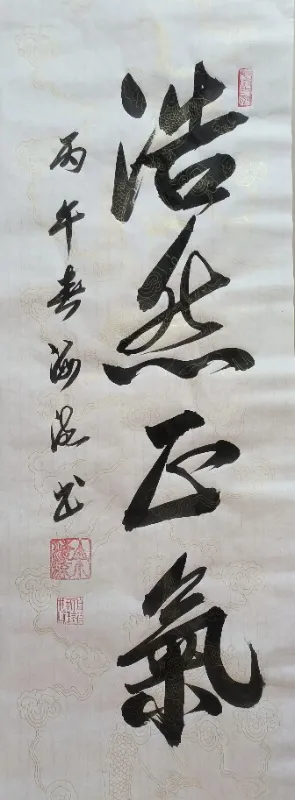 浩然正氣
丙午春海源書